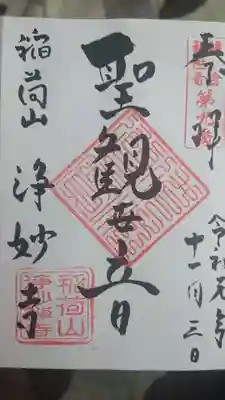 奉拝
令和元年
十一月三日
聖観世音
稲荷山
浄妙寺
稲荷山
浄妙禅寺